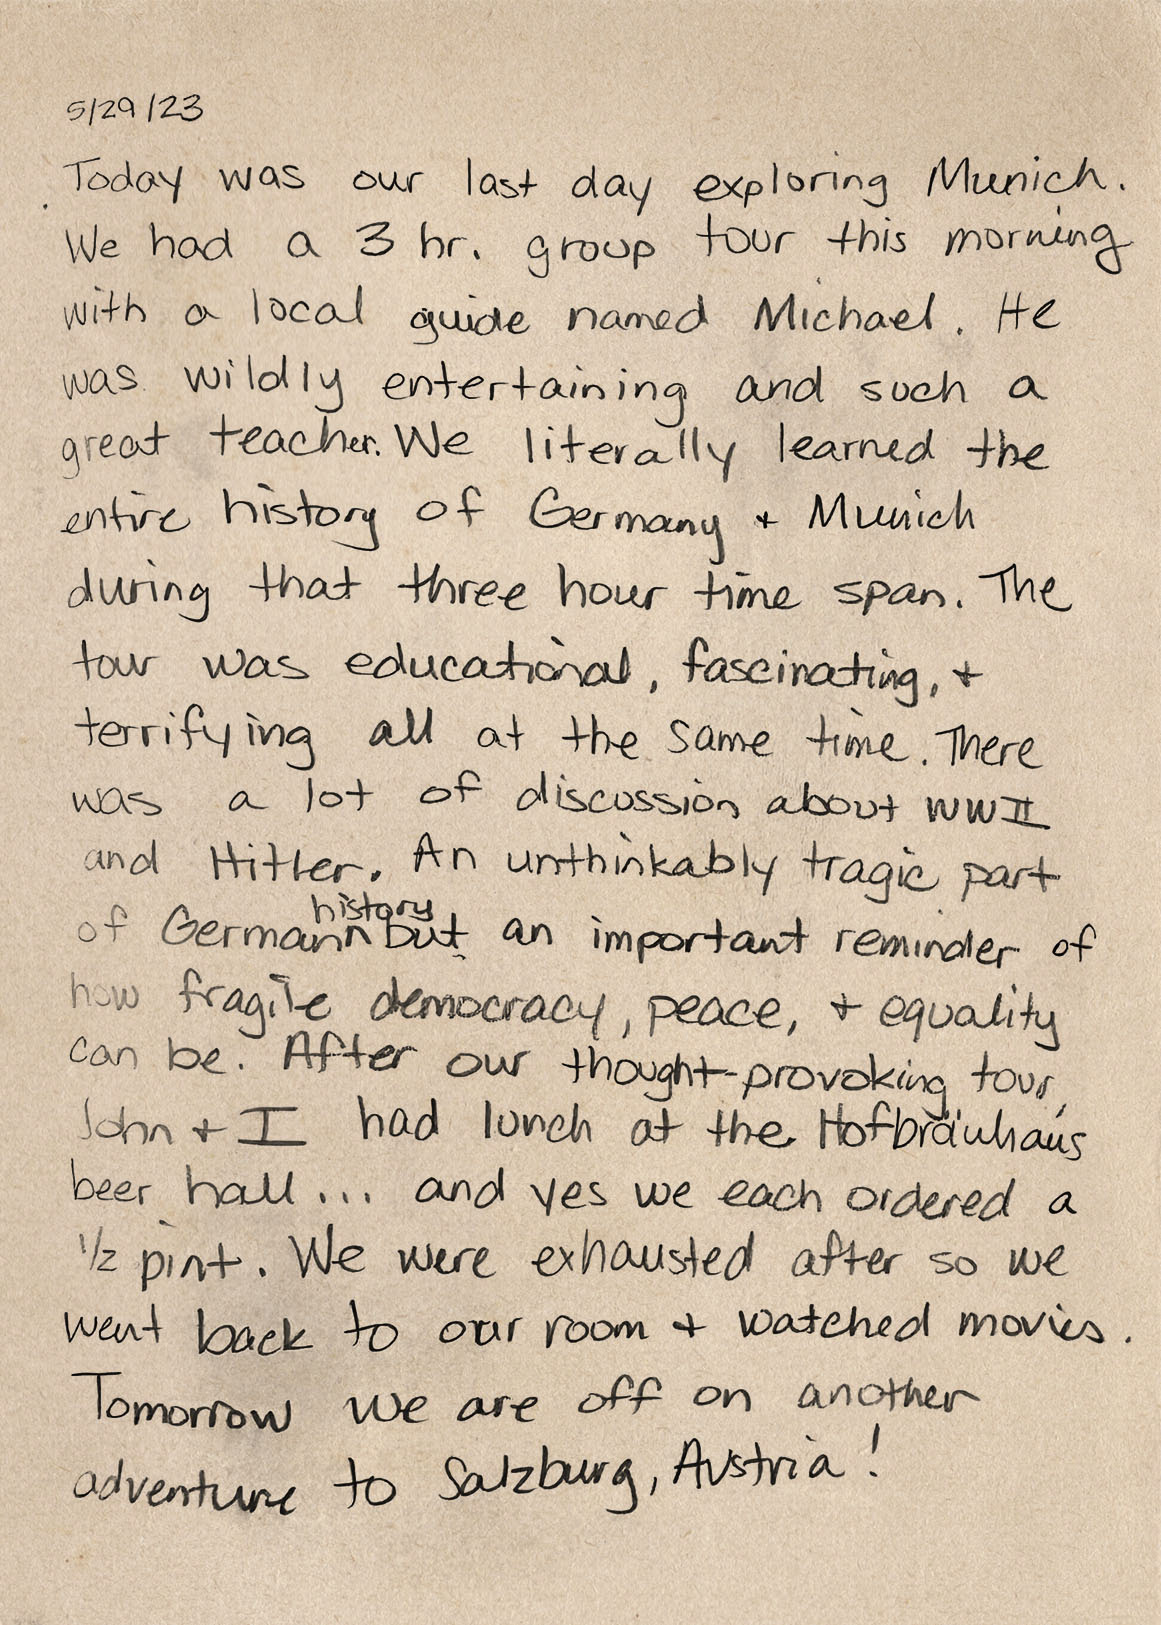 5/29/23
Today was our last day exploring Munich.
We had a 3 hr. group tour this morning
with a local guide named Michael. He
was wildly entertaining and such a
great teacher. We literally learned the
entire history of Germany + Munich
during that three hour time span. The
tour was educational, fascinating, +
terrifying all at the same time. There
was a lot of discussion about WWII
and Hitler. An unthinkably tragic part
history
of German but an important reminder of
how fragile democracy, peace, + equality
can be. After our thought-provoking tour,
John + I had lunch at the Hofbräuhaus
beer hall... and yes we each ordered a
1/2 pint. We were exhausted after so we
went back to our room + watched movies.
Tomorrow we are off on another
adventure to Salzburg, Austria!